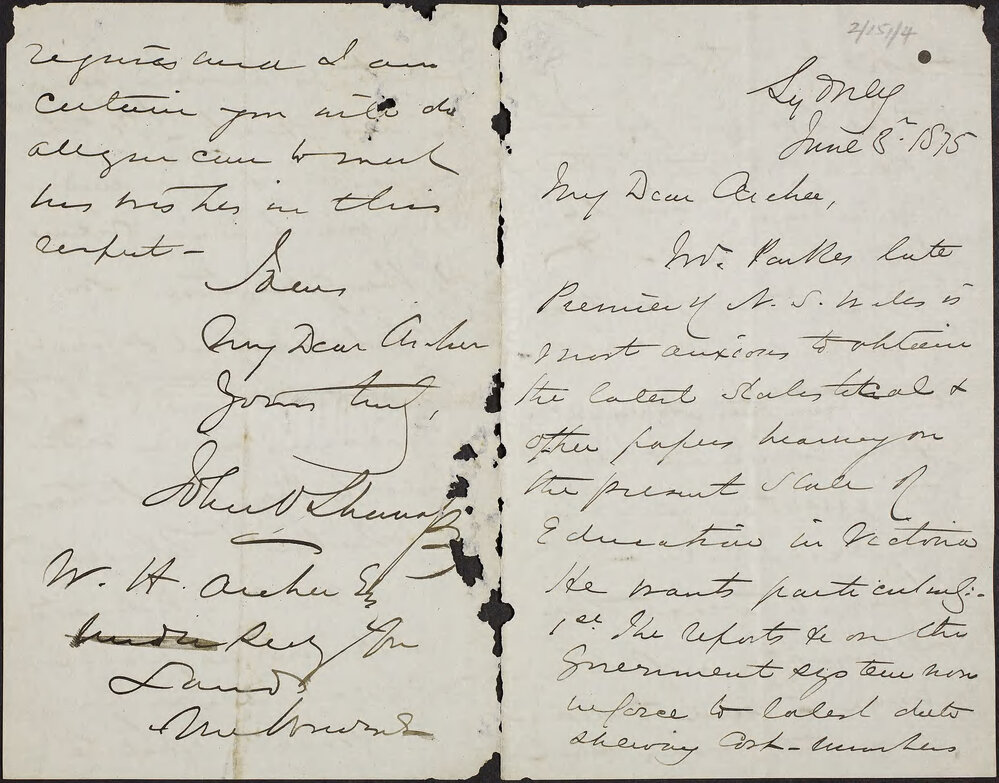 2/151/4
Sydney
June 8th 1875
My Dear Archer,
Mr. Parkes late
Premier of N. S. Wales is
most anxious to obtain
the latest Statistical &
other papers bearing on
the present State of
Education in Victoria
He wants particularly:-
1st The reports &c on the
Government system now
in force to latest date
shewing Cost - numbers
requires and I am
certain you will do
all you can to meet
his wishes in this
respect -
My Dear Archer
Yours truly,
W. H. Archer Esq
Secy for
Lands
Melbourne